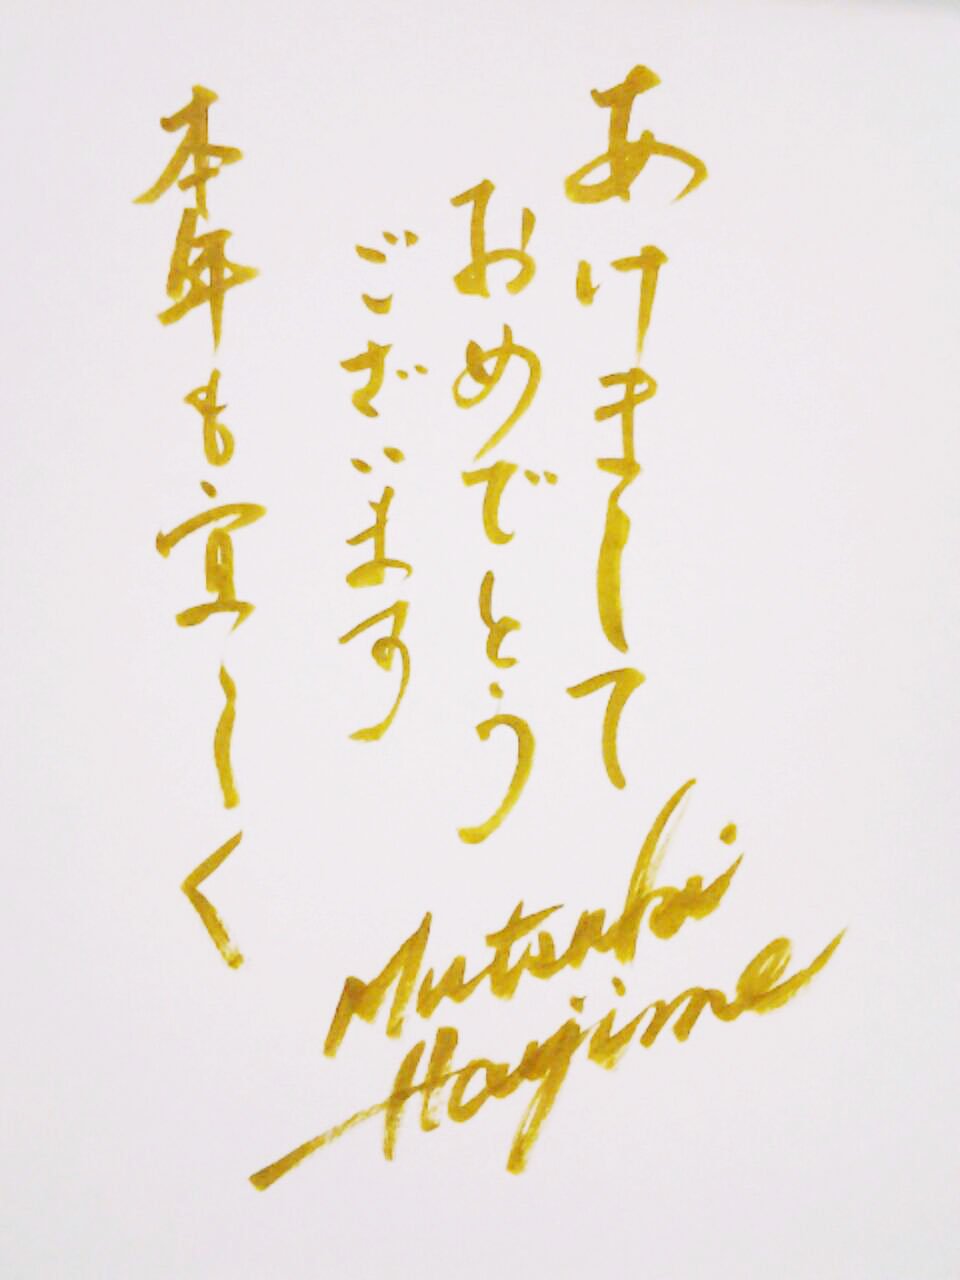 あけまして
おめでとう
ございます
本年も宜しく
Mutsuki
Hajime